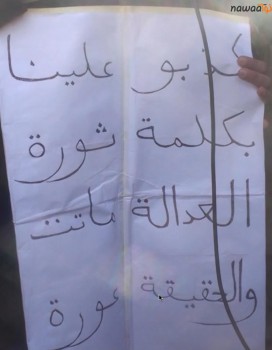 nawaa
كذبو علينا
بكلمة ثورة
العدالة ماتت
والحقيقة عورة